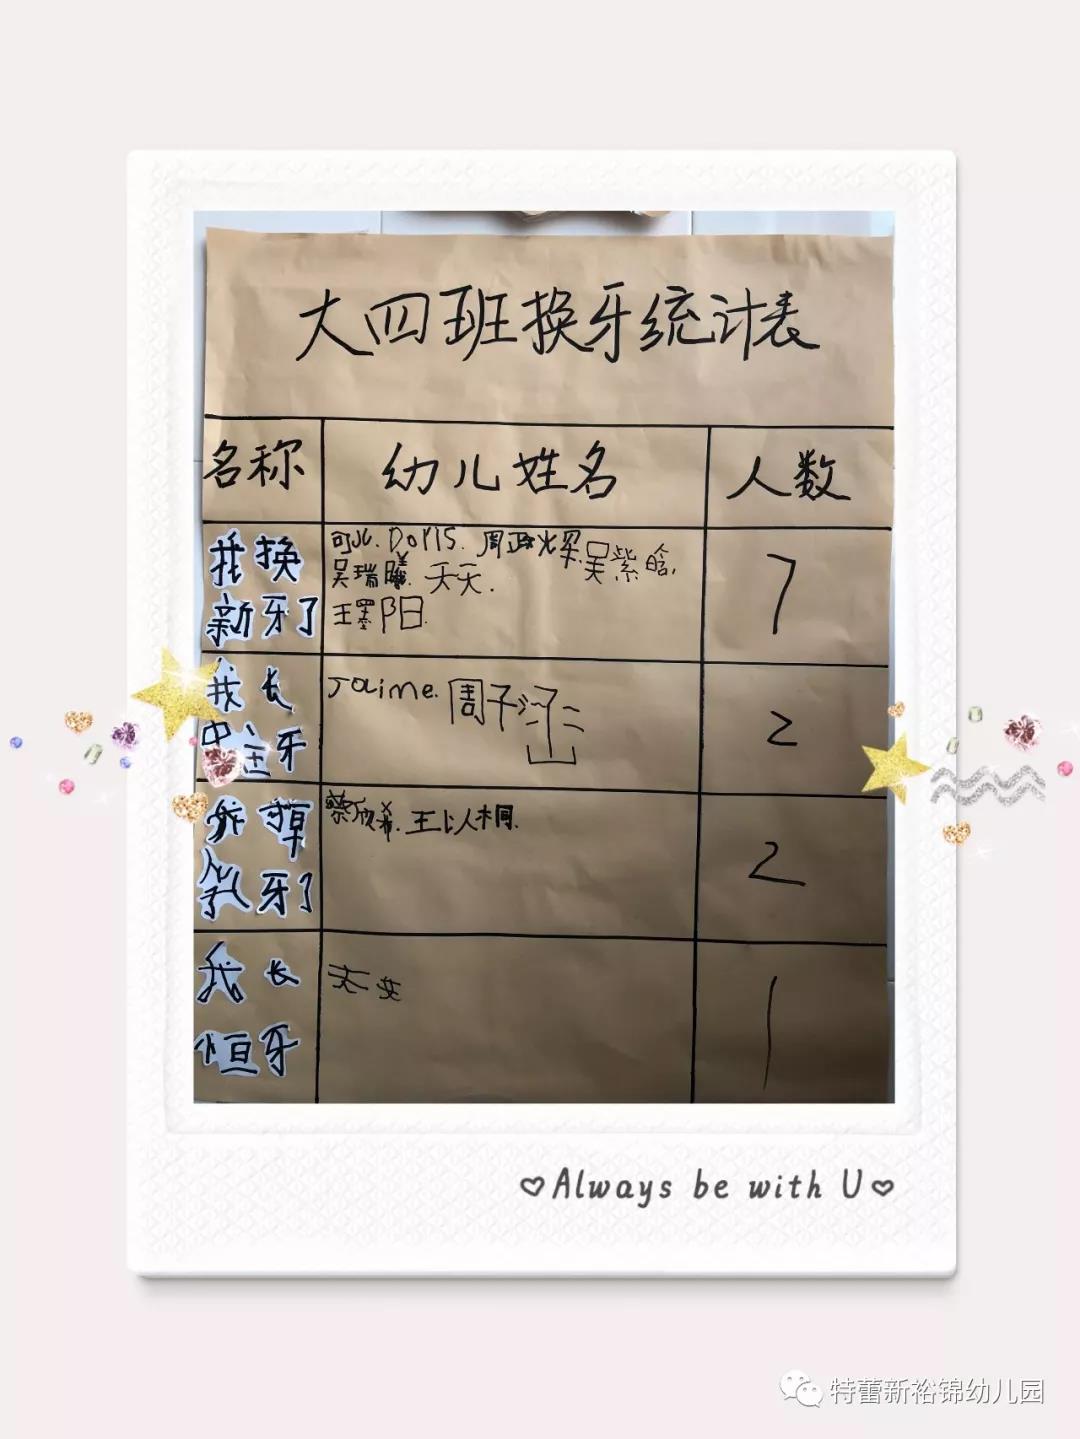 大四班换牙统计表
名称 幼儿姓名 人数
我换
新牙了
可儿. Doris. 周政燃.吴紫晗.
吴瑞曦. 天天.
王墨阳.
7
我长
中主牙
Jaime. 周子
2
我掉
乳牙了
蔡欣希. 王以桐.
2
我长
恒牙
天
1
Always be with U
特蕾新裕锦幼儿园